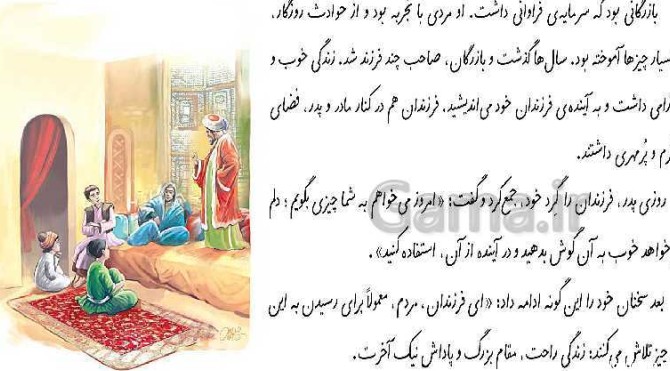 بازرگانی بود که سرمایه‌ی فراوانی داشت. او مردی با تجربه بود و از حوادث روزگار،
سیار چیزها آموخته بود. سال‌ها گذشت و بازرگان، صاحب چند فرزند شد. زندگی خوب و
رامی داشت و به آینده‌ی فرزندان خود می‌اندیشید. فرزندان هم در کنار مادر و پدر، فضای
رم و پُرمهری داشتند.
روزی پدر، فرزندان را گِرد خود، جمع کرد و گفت: «امروز می‌خواهم به شما چیزی بگویم؛ دلم
خواهد خوب به آن گوش بدهید و در آینده از آن، استفاده کنید».
بعد سخنان خود را این گونه ادامه داد: «ای فرزندان، مردم، معمولاً برای رسیدن به این
چیز تلاش می‌کنند: زندگی راحت، مقام بزرگ و پاداش نیک آخرت.
Gama.ir